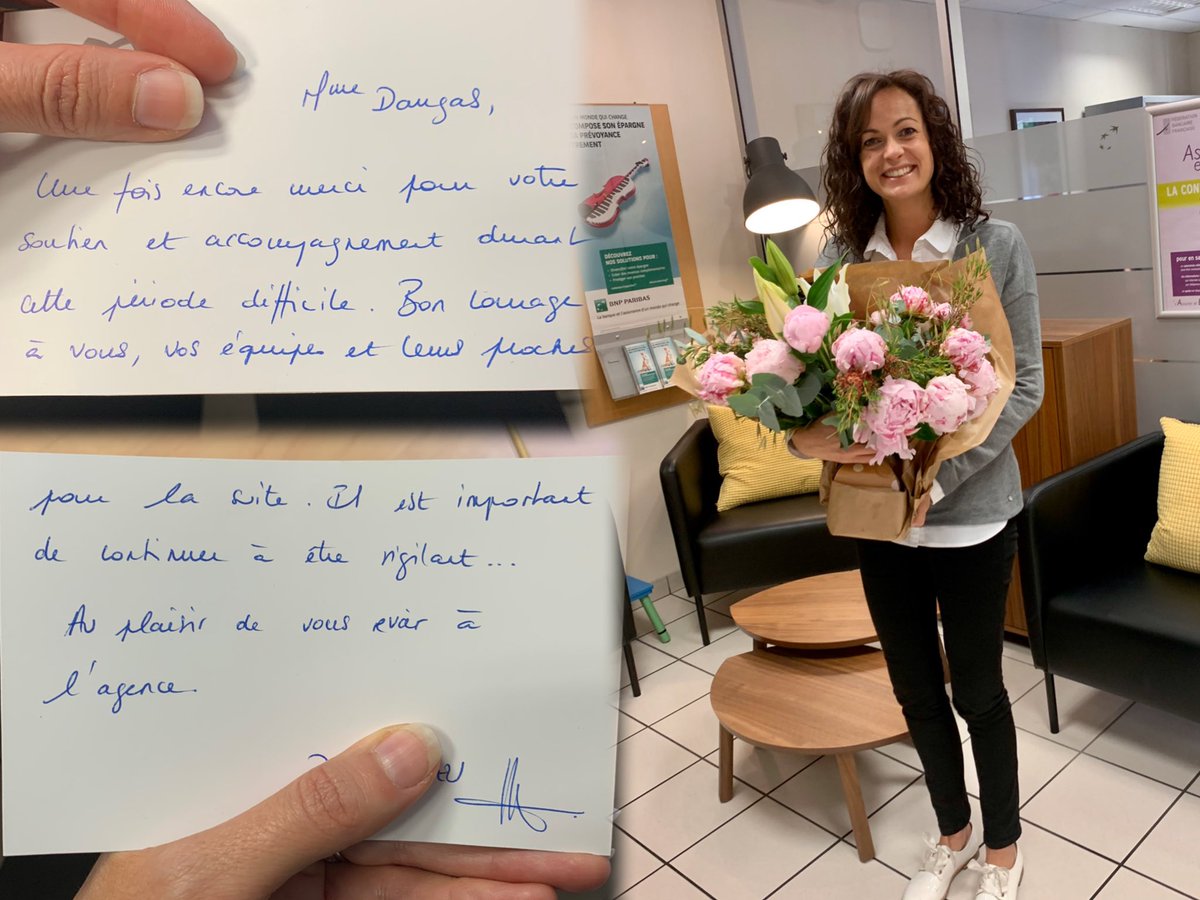 Mme Daugas,
Une fois encore merci pour votre
soutien et accompagnement durant
cette période difficile. Bon courage
à vous, vos équipes et leurs proches
pour la suite. Il est important
de continuer à être vigilant...
Au plaisir de vous revoir à
l'agence.
UN MONDE QUI CHANGE
COMPOSE SON ÉPARGNE
LA PRÉVOYANCE
TREMENT
DÉCOUVREZ
NOS SOLUTIONS POUR :
BNP PARIBAS
La banque et l'assurance d'un monde qui change
FÉDÉRATION
BANCAIRE
FRANÇAISE
As
e
LA CON
pour en sa